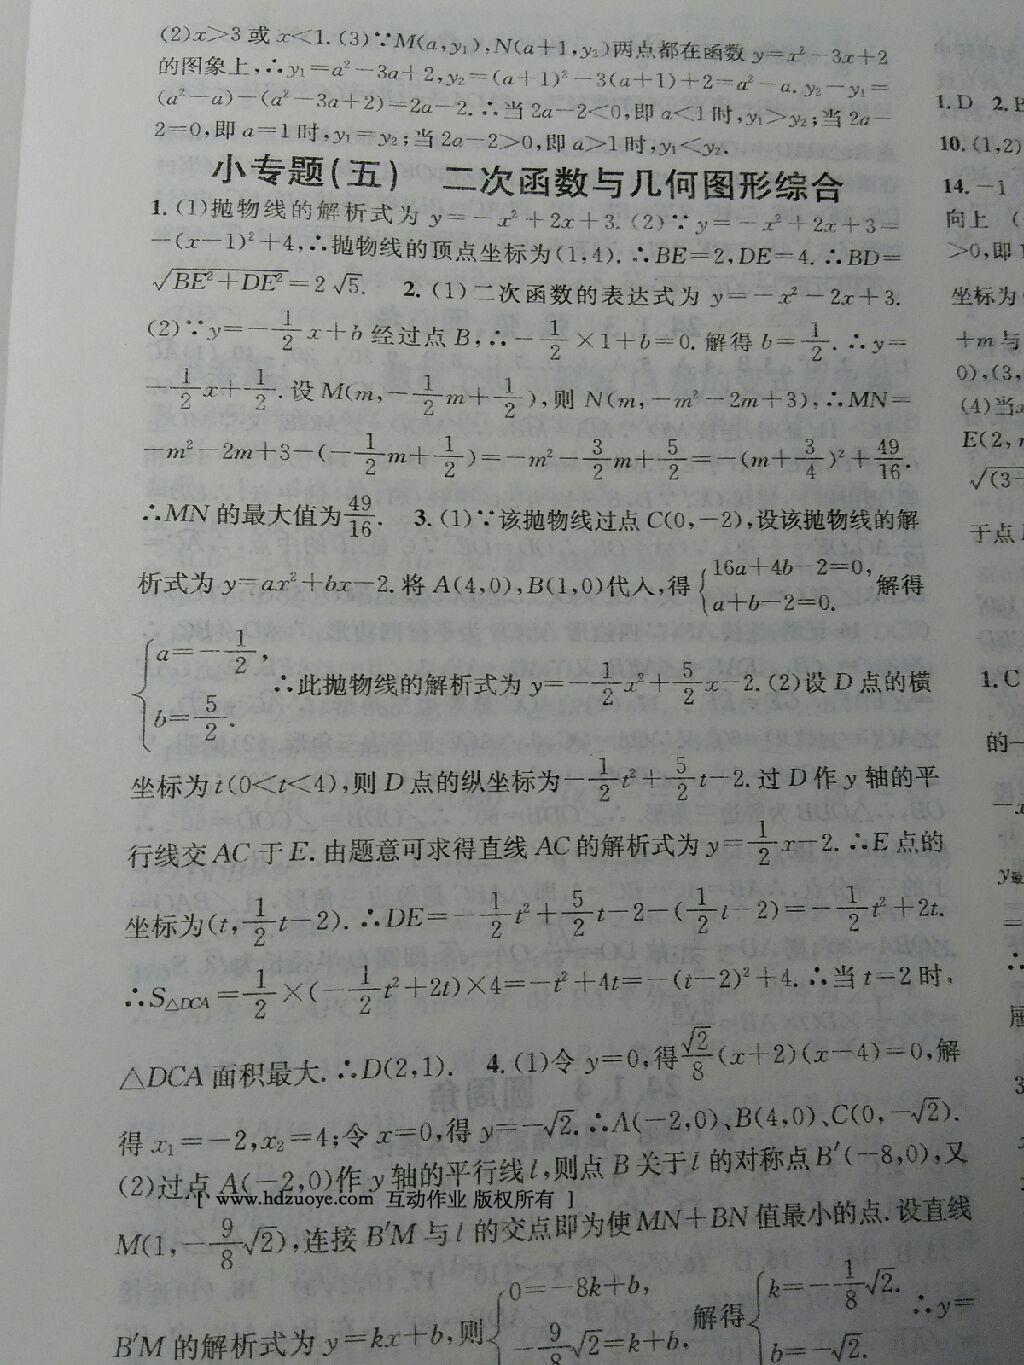 (2)x>3 或 x<1. (3)∵M(a,y₁),N(a+1,y₂)两点都在函数 y=x²-3x+2
的图象上,∴y₁=a²-3a+2,y₂=(a+1)²-3(a+1)+2=a²-a. y₂-y₁=
(a²-a)-(a²-3a+2)=2a-2. ∴当 2a-2<0,即 a<1 时,y₁>y₂;当 2a-
2=0,即 a=1 时,y₁=y₂;当 2a-2>0,即 a>1 时,y₁<y₂.
小专题(五) 二次函数与几何图形综合
1. (1)抛物线的解析式为 y=-x²+2x+3. (2)∵y=-x²+2x+3=
-(x-1)²+4,∴抛物线的顶点坐标为(1,4). ∴BE=2,DE=4. ∴BD=
√(BE²+DE²)=2√5. 2. (1)二次函数的表达式为 y=-x²-2x+3.
(2)∵y=-1/2x+b 经过点 B,∴-1/2×1+b=0. 解得 b=1/2. ∴y=
-1/2x+1/2. 设 M(m,-1/2m+1/2),则 N(m,-m²-2m+3),∴MN=
-m²-2m+3-(-1/2m+1/2)=-m²-3/2m+5/2=-(m+3/4)²+49/16.
∴MN 的最大值为49/16. 3. (1)∵该抛物线过点 C(0,-2),设该抛物线的解
析式为 y=ax²+bx-2. 将 A(4,0),B(1,0)代入,得{16a+4b-2=0, a+b-2=0. 解得
{a=-1/2, b=5/2. ∴此抛物线的解析式为 y=-1/2x²+5/2x-2. (2)设 D 点的横
坐标为 t(0<t<4),则 D 点的纵坐标为-1/2t²+5/2t-2. 过 D 作 y 轴的平
行线交 AC 于 E. 由题意可求得直线 AC 的解析式为 y=1/2x-2. ∴E 点的
坐标为(t,1/2t-2). ∴DE=-1/2t²+5/2t-2-(1/2t-2)=-1/2t²+2t.
∴S△DCA=1/2×(-1/2t²+2t)×4=-t²+4t=-(t-2)²+4. ∴当 t=2 时,
△DCA 面积最大. ∴D(2,1). 4. (1)令 y=0,得√2/8(x+2)(x-4)=0,解
得 x₁=-2,x₂=4;令 x=0,得 y=-√2. ∴A(-2,0)、B(4,0)、C(0,-√2).
(2)过点 A(-2,0)作 y 轴的平行线 l,则点 B 关于 l 的对称点 B′(-8,0),又
[ www.hdzuoye.com 互动作业 版权所有 ]
M(1,-9/8√2),连接 B′M 与 l 的交点即为使 MN+BN 值最小的点. 设直线
B′M 的解析式为 y=kx+b,则{0=-8k+b, -9/8√2=k+b, 解得{k=-1/8√2. b=-√2. ∴y=
1. D 2.
10. (1,2)
14. -1
向上
>0,即
坐标为
+m 与
0),(3,
(4)当x
E(2,
√(3-
于点
1. C
的一
-x